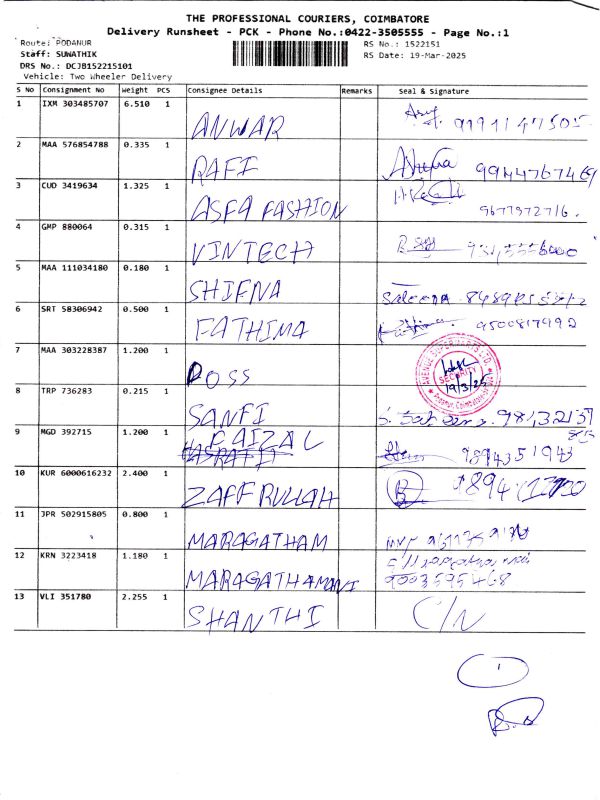 THE PROFESSIONAL COURIERS, COIMBATORE
Delivery Runsheet - PCK - Phone No.:0422-3505555 - Page No.:1
Route: PODANUR RS No.: 1522151
Staff: SUWATHIK RS Date: 19-Mar-2025
DRS No.: DCJB152215101
Vehicle: Two Wheeler Delivery
S No Consignment No Weight PCS Consignee Details Remarks Seal & Signature
1 IXM 303485707 6.510 1 ANWAR
2 MAA 576854788 0.335 1 RAFI 9944767469
3 CUD 3419634 1.325 1 ASFA FASHION 9677972716.
4 GMP 880064 0.315 1 VINTECH
5 MAA 111034180 0.180 1 SHIFNA Saleena
6 SRT 58306942 0.500 1 FATHIMA 9500817992
7 MAA 303228387 1.200 1 DOSS AVENUE SUPERMARTS LTD. SECURITY 19/3/25
8 TRP 736283 0.215 1 SANFI
9 MGD 392715 1.200 1 FAIZAL 9894351943
10 KUR 6000616232 2.400 1 ZAFFRULLAH
11 JPR 502915805 0.800 1 MARAGATHAM
12 KRN 3223418 1.180 1 MARAGATHAMANI 9003595468
13 VLI 351780 2.255 1 SHANTHI C/N
1